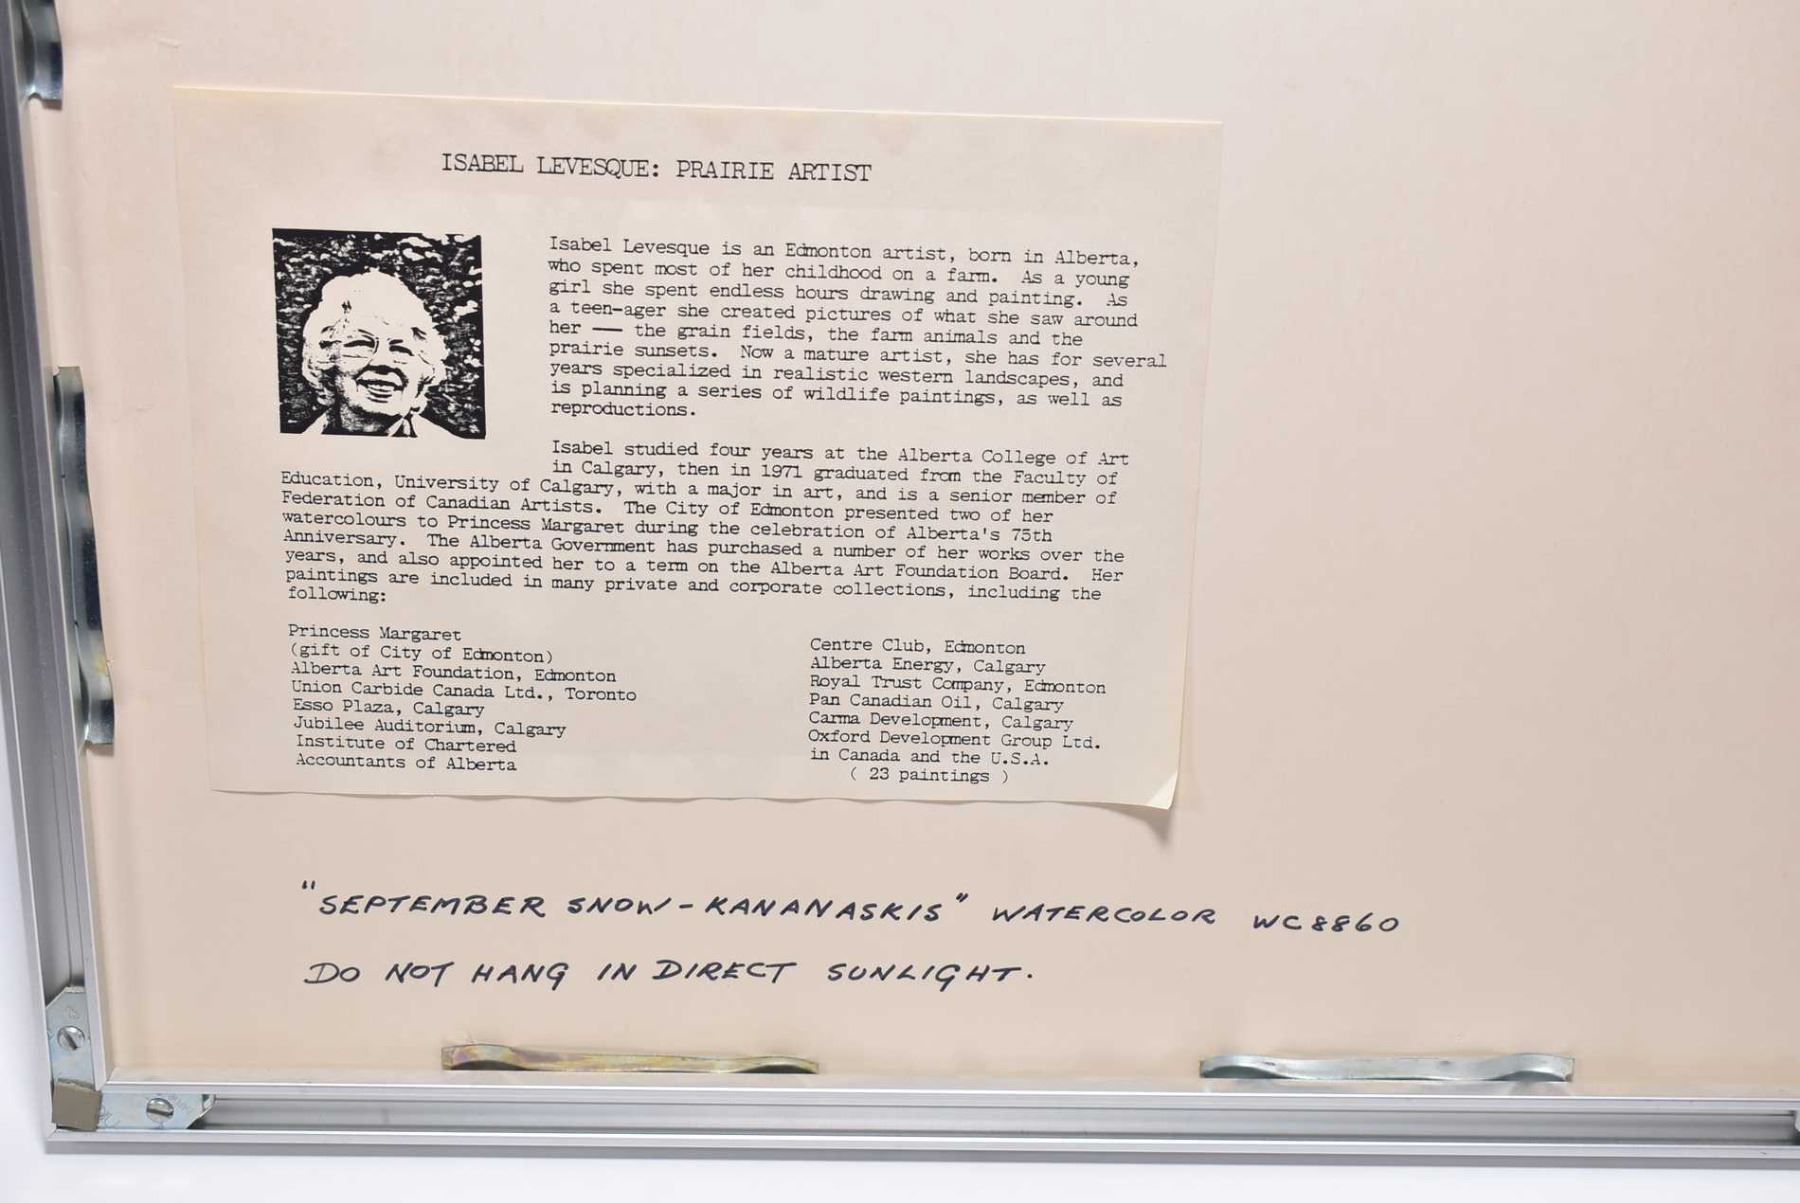 ISABEL LEVESQUE: PRAIRIE ARTIST
Isabel Levesque is an Edmonton artist, born in Alberta,
who spent most of her childhood on a farm. As a young
girl she spent endless hours drawing and painting. As
a teen-ager she created pictures of what she saw around
her — the grain fields, the farm animals and the
prairie sunsets. Now a mature artist, she has for several
years specialized in realistic western landscapes, and
is planning a series of wildlife paintings, as well as
reproductions.
Isabel studied four years at the Alberta College of Art
in Calgary, then in 1971 graduated from the Faculty of
Education, University of Calgary, with a major in art, and is a senior member of
Federation of Canadian Artists. The City of Edmonton presented two of her
watercolours to Princess Margaret during the celebration of Alberta's 75th
Anniversary. The Alberta Government has purchased a number of her works over the
years, and also appointed her to a term on the Alberta Art Foundation Board. Her
paintings are included in many private and corporate collections, including the
following:
Princess Margaret
(gift of City of Edmonton)
Alberta Art Foundation, Edmonton
Union Carbide Canada Ltd., Toronto
Esso Plaza, Calgary
Jubilee Auditorium, Calgary
Institute of Chartered
Accountants of Alberta
Centre Club, Edmonton
Alberta Energy, Calgary
Royal Trust Company, Edmonton
Pan Canadian Oil, Calgary
Carma Development, Calgary
Oxford Development Group Ltd.
in Canada and the U.S.A.
( 23 paintings )
"SEPTEMBER SNOW - KANANASKIS" WATERCOLOR WC8860
DO NOT HANG IN DIRECT SUNLIGHT.